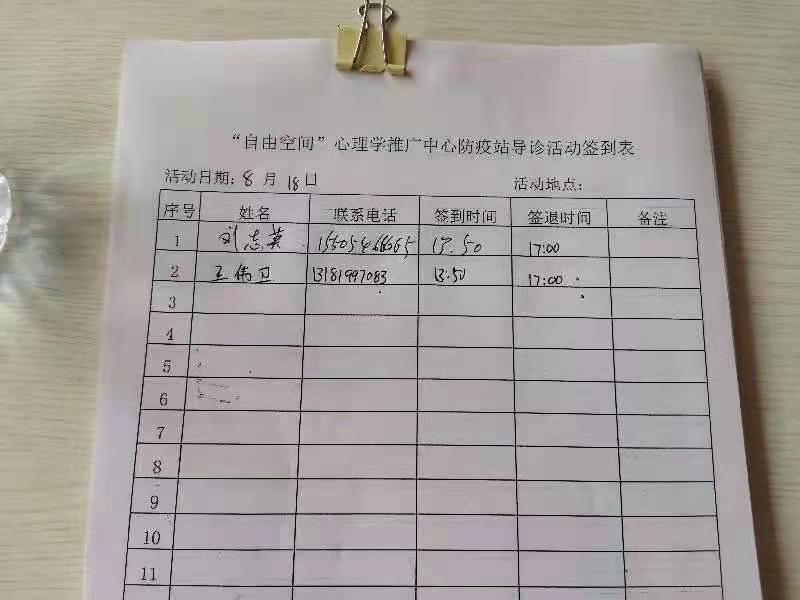 “自由空间”心理学推广中心防疫站导诊活动签到表
活动日期：8月18日 活动地点：
序号 姓名 联系电话 签到时间 签退时间 备注
1 刘志英 13.50 17:00
2 王伟卫 13181997083 13:50 17:00
3
4
5
6
7
8
9
10
11